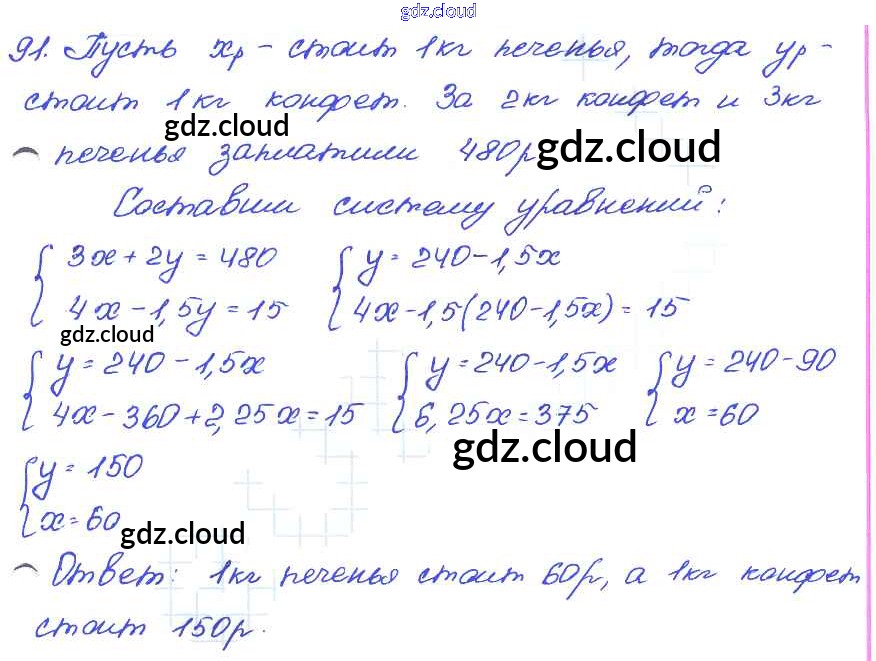 gdz.cloud
91. Пусть xр - стоит 1кг печенья, тогда yр -
стоит 1кг конфет. За 2кг конфет и 3кг
gdz.cloud
печенья заплатили 480р gdz.cloud
Составим систему уравнений:
{ 3x + 2y = 480 { y = 240 - 1,5x
4x - 1,5y = 15 4x - 1,5(240 - 1,5x) = 15
gdz.cloud
{ y = 240 - 1,5x { y = 240 - 1,5x { y = 240 - 90
4x - 360 + 2,25x = 15 6,25x = 375 x = 60
gdz.cloud
{ y = 150
x = 60
gdz.cloud
Ответ: 1кг печенья стоит 60р, а 1кг конфет
стоит 150р.